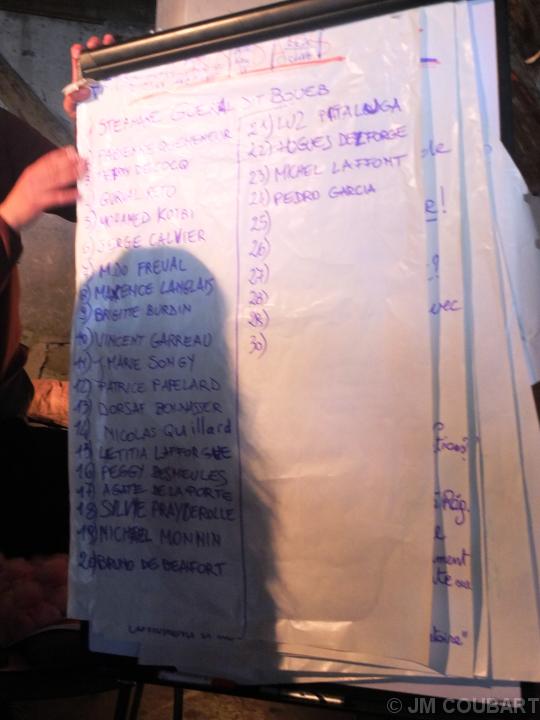 STEPHANE GUERAL DIT BOUEB
FABIENNE QUEMENEUR
DECOCQ
5) MOHAMED KOTBI
6) SERGE CALVIER
7) MDO FREVAL
8) MAXENCE LANGLAIS
9) BRIGITTE BURDIN
10) VINCENT GARREAU
11) J. MARIE SONGY
12) PATRICE PAPELARD
13) DORSAF BENNASSER
14 NICOLAS QUillard
15 LETITIA LAFFORGUE
16 PEGGY DESMEULES
17 AGATE DE LA PORTE
18 SYLVIE PRAYDEROLLE
19) MICHAEL MONNIN
20) BRUNO DE BEAUFORT
21) LUZ
22) HUGUES DELFORGE
23) MICHEL LAFFONT
24) PEDRO GARCIA
25)
26)
27)
28)
29)
30)
de
e!
?
vec
Rég.
e
ment
toire"
© JM COUBART